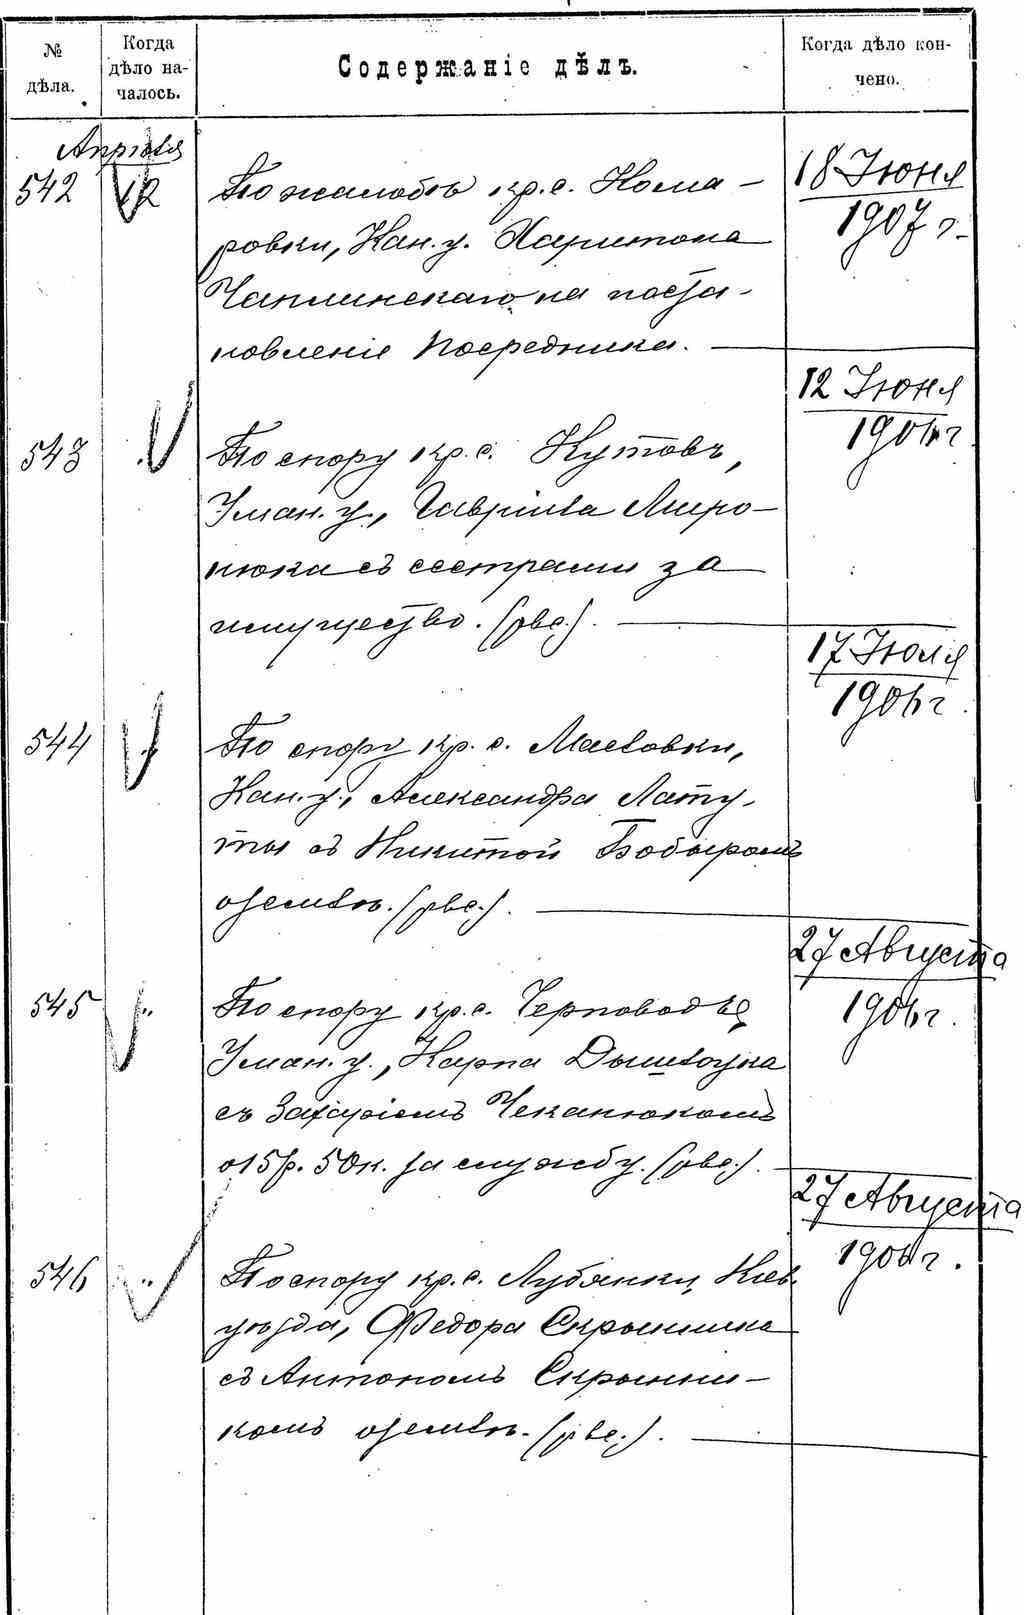 № дѣла.
Когда дѣло началось.
Содержаніе дѣлъ.
Когда дѣло кончено.
Апрѣля
542 12 По жалобѣ кр. с. Кома-
18 Июня
ровки, Кан. у. Харитона
1907 г.
Чаплинскаго на поста-
новленіе Посредника.
12 Июня
543 По спору кр. с. Кутовъ,
1906 г.
Уман. у., Гавріила Миро-
нюка съ сестрами за
имущество. (рвс.).
17 Июля
1906 г.
544 " По спору кр. с. Масловки,
Кан. у., Александра Лату-
ты съ Никитой Бобыремъ
о землѣ. (рвс.).
27 Августа
545 " По спору кр. с. Черповодъ,
1906 г.
Уман. у., Карпа
съ Захаріемъ Чеканюкомъ
о 15 р. 50 к. за службу. (рвс.).
27 Августа
546 " По спору кр. с. Лубянки, Кіев.
1906 г.
уѣзда, Федора Скрынника
съ Антономъ Скрынни-
комъ о землѣ. (рвс.).